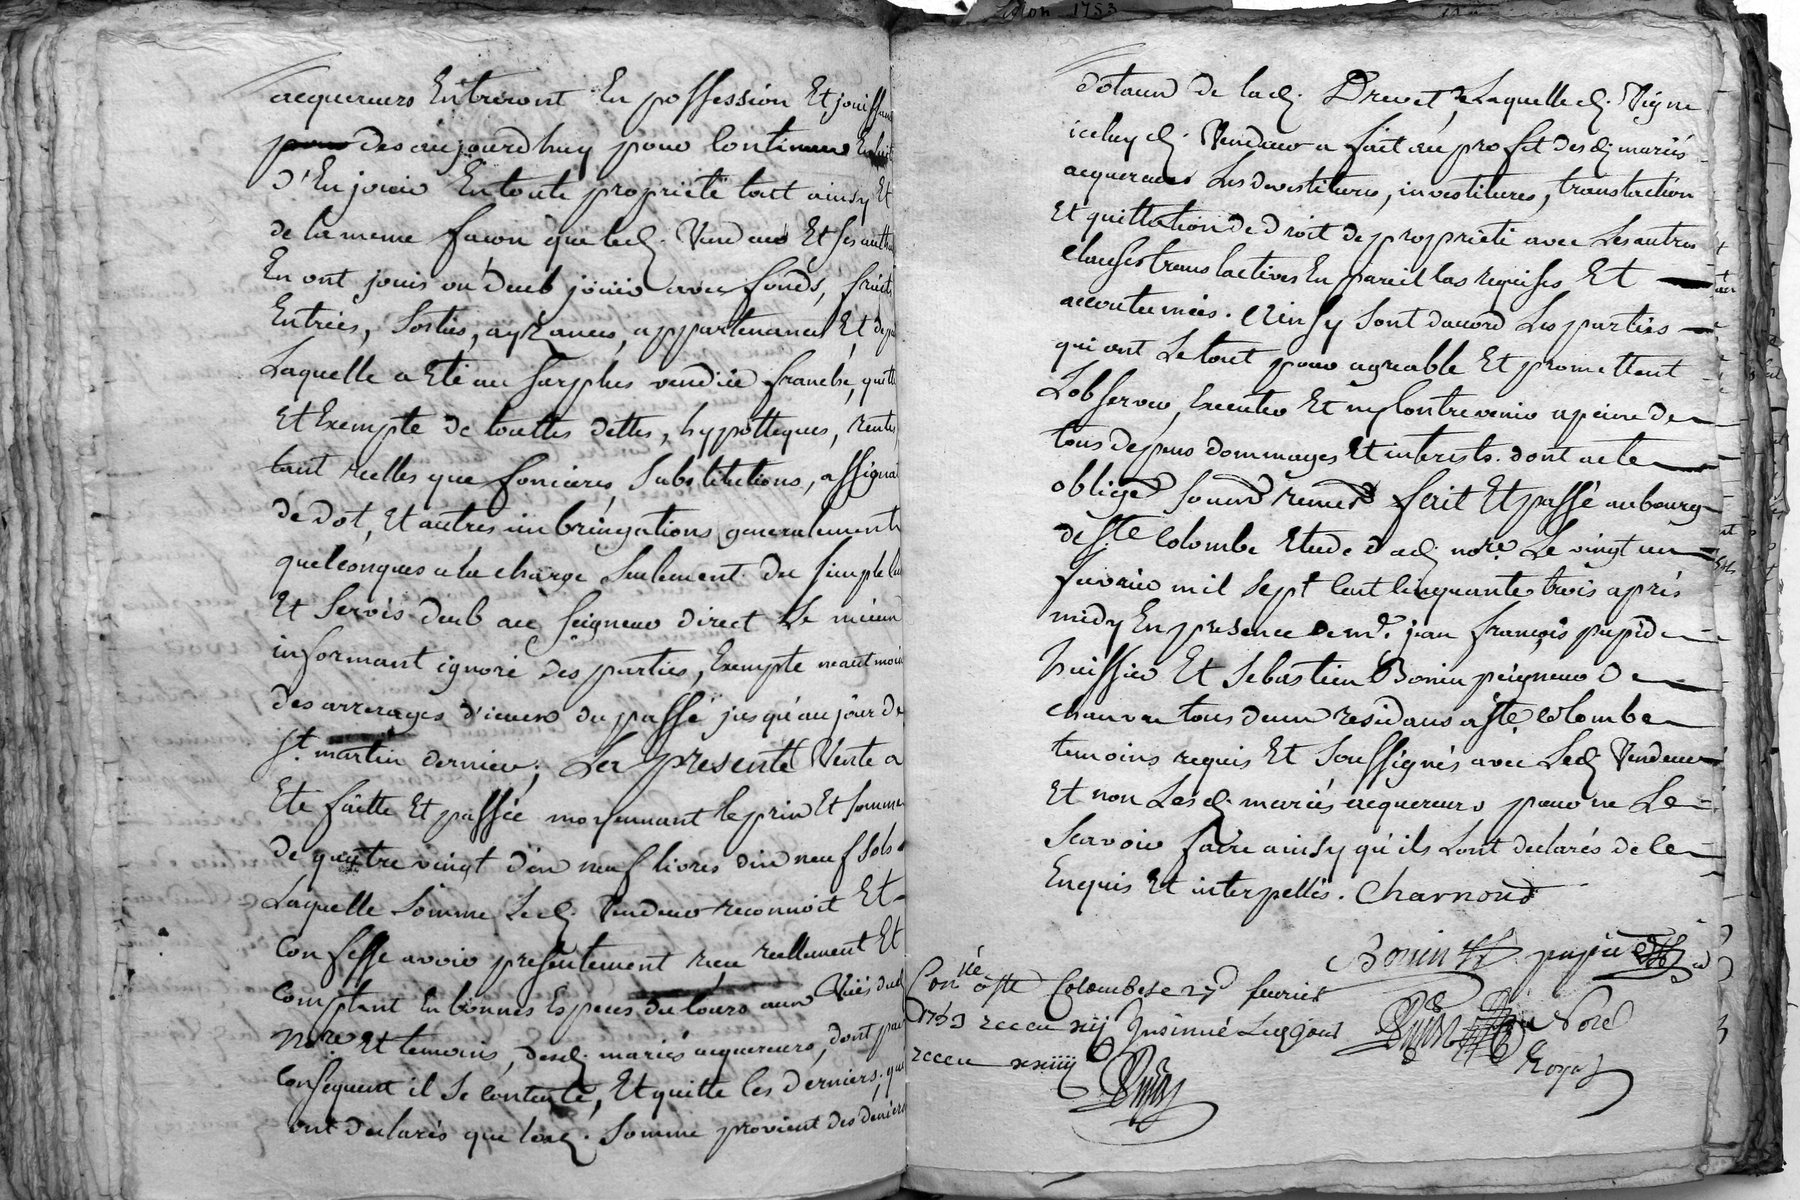 acquereurs Entreront En possession Et jouissance
des aujourd huy pour Continuer
d'En jouir En toute propriété tout ainsy Et
de la meme facon que led. Vendeur Et ses autheurs
En ont jouis ou deub jouir avec fonds, fruits
Entrées, Sorties, ayzances, appartenances Et
Laquelle a Eté au surplus vendüe franche, quitte
Et Exempte de touttes dettes, hypotteques, rentes
tant réelles que foncieres, Substitutions, assignat
de dot, Et autres imbringations generalement
quelconques a la charge Seulement du simple
Et Servis deub au Seigneur direct Le mieux
informant ignoré des parties, Exempte neantmoins
des arrerages d'iceux du passé jusqu'au jour de
St. martin dernier; La presente Vente a
Eté faitte Et passée moyennant le prix Et somme
de quatre vingt dix neuf livres dix neuf sols
Laquelle somme Led. Vendeur reconnoit Et
Confesse avoir presentement receu reellement Et
Comptant En bonnes Especes du cours aux Vües dud.
Nore Et temoins, desd. mariés acquereurs, dont par
consequent il se contente, Et quitte les derniers. qui
ont declarés que lad. Somme provient des deniers
dotaux de lad. Drevet, de Laquelle d. Vigne
iceluy d. Vendeur a fait au profit desd. mariés
acquereurs Les devestitures, investitures, translaction
Et quittation de droit de proprieté avec Les autres
Clauses translactives En pareil Cas requises Et
accoutumées. Ainsy Sont daccord Les parties
qui ont Le tout pour agreable Et promettent
L'observer, Executer Et ny Contrevenir a peine de
tous depens dommages Et interests. dont acte
obligeant soumettant renonçant fait Et passé au bourg
de Ste Colombe Etude dud. nore. Le vingt un
fuvrier mil Sept Cent Cinquante trois après
midy En presence de me. jean françois pupid
huissier Et Sebastien Bonin peigneur de
chanvre tous deux residans a Ste Colombe
temoins requis Et Soussignés avec Led. Vendeur
Et non Lesd. mariés acquereurs pour ne Le
Scavoir faire ainsy qu'ils Lont declarés de Ce
Enquis Et interpellés. Charnoud
Bonin pupid
Conlé a Ste Colombe Le 27 fevrier
1753 receu xij Insinué Led. jour
receu xxiiij
Nore
Royal